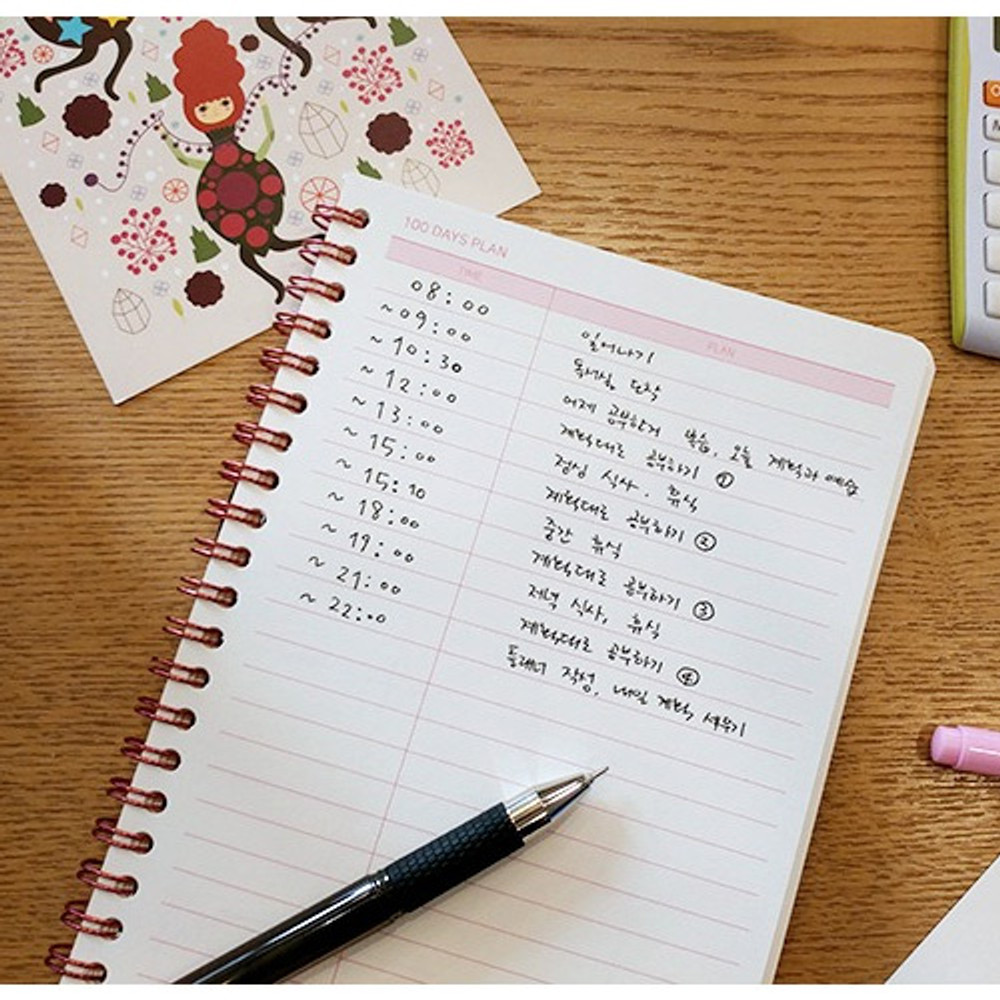 100 DAYS PLAN
TIME PLAN
08:00 일어나기
~09:00 독서실 도착
~10:30 어제 공부한거 복습, 오늘 계획과 예습
~12:00 계획대로 공부하기 ①
~13:00 점심 식사. 휴식
~15:00 계획대로 공부하기 ②
~15:10 중간 휴식
~18:00 계획대로 공부하기 ③
~19:00 저녁 식사, 휴식
~21:00 계획대로 공부하기 ④
~22:00 플래너 작성, 내일 계획 세우기